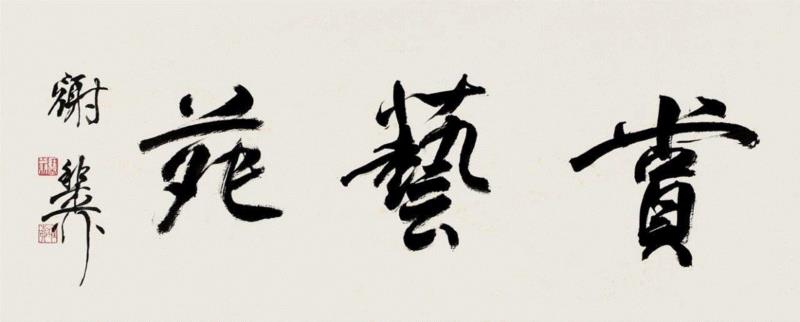 賞藝苑
謝稚柳